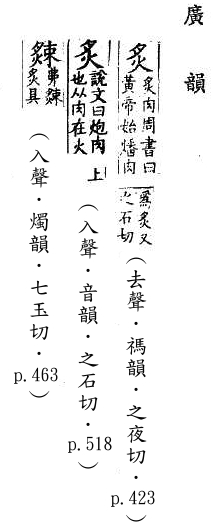 廣韻
炙 炙肉周書曰
黃帝始燔肉
爲炙又
之石切
(去聲．禡韻．之夜切．p.423)
炙 說文曰炮肉
也从肉在火
上
(入聲．音韻．之石切．p.518)
弗
炙具
(入聲．燭韻．七玉切．p.463)